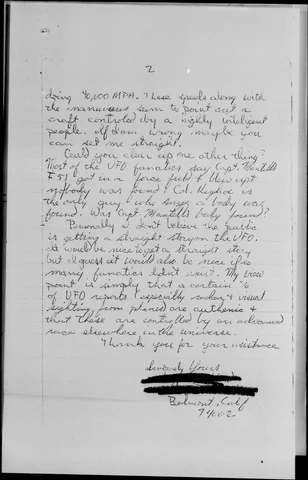 2
doing 90,000 MPH. These speeds along with
the manuvers seem to point out a
craft controled by a highly inteligent
people. If I am wrong maybe you
can set me straight.
Could you clear up one other thing?
Most of the UFO fanatics say Capt. Mantells
F51 got in a force field & blew up
nobody was found! Col. Keyhoe is
the only guy who says a body was
found. Was Capt Mantells body found?
Personally I don't believe the public
is getting a straight story on the UFO.
It would be nice to get a straight story
but I guess it would also be nice if so
many fanatics didn't exist. My view
point is simply that a certain %
of UFO reports especially radar & visual
sighting from planes are authenic &
that these are controlled by an advanced
race elsewhere in the universe.
Thank you for your assistance
Sincerely Yours
Belmont, Calif
94002